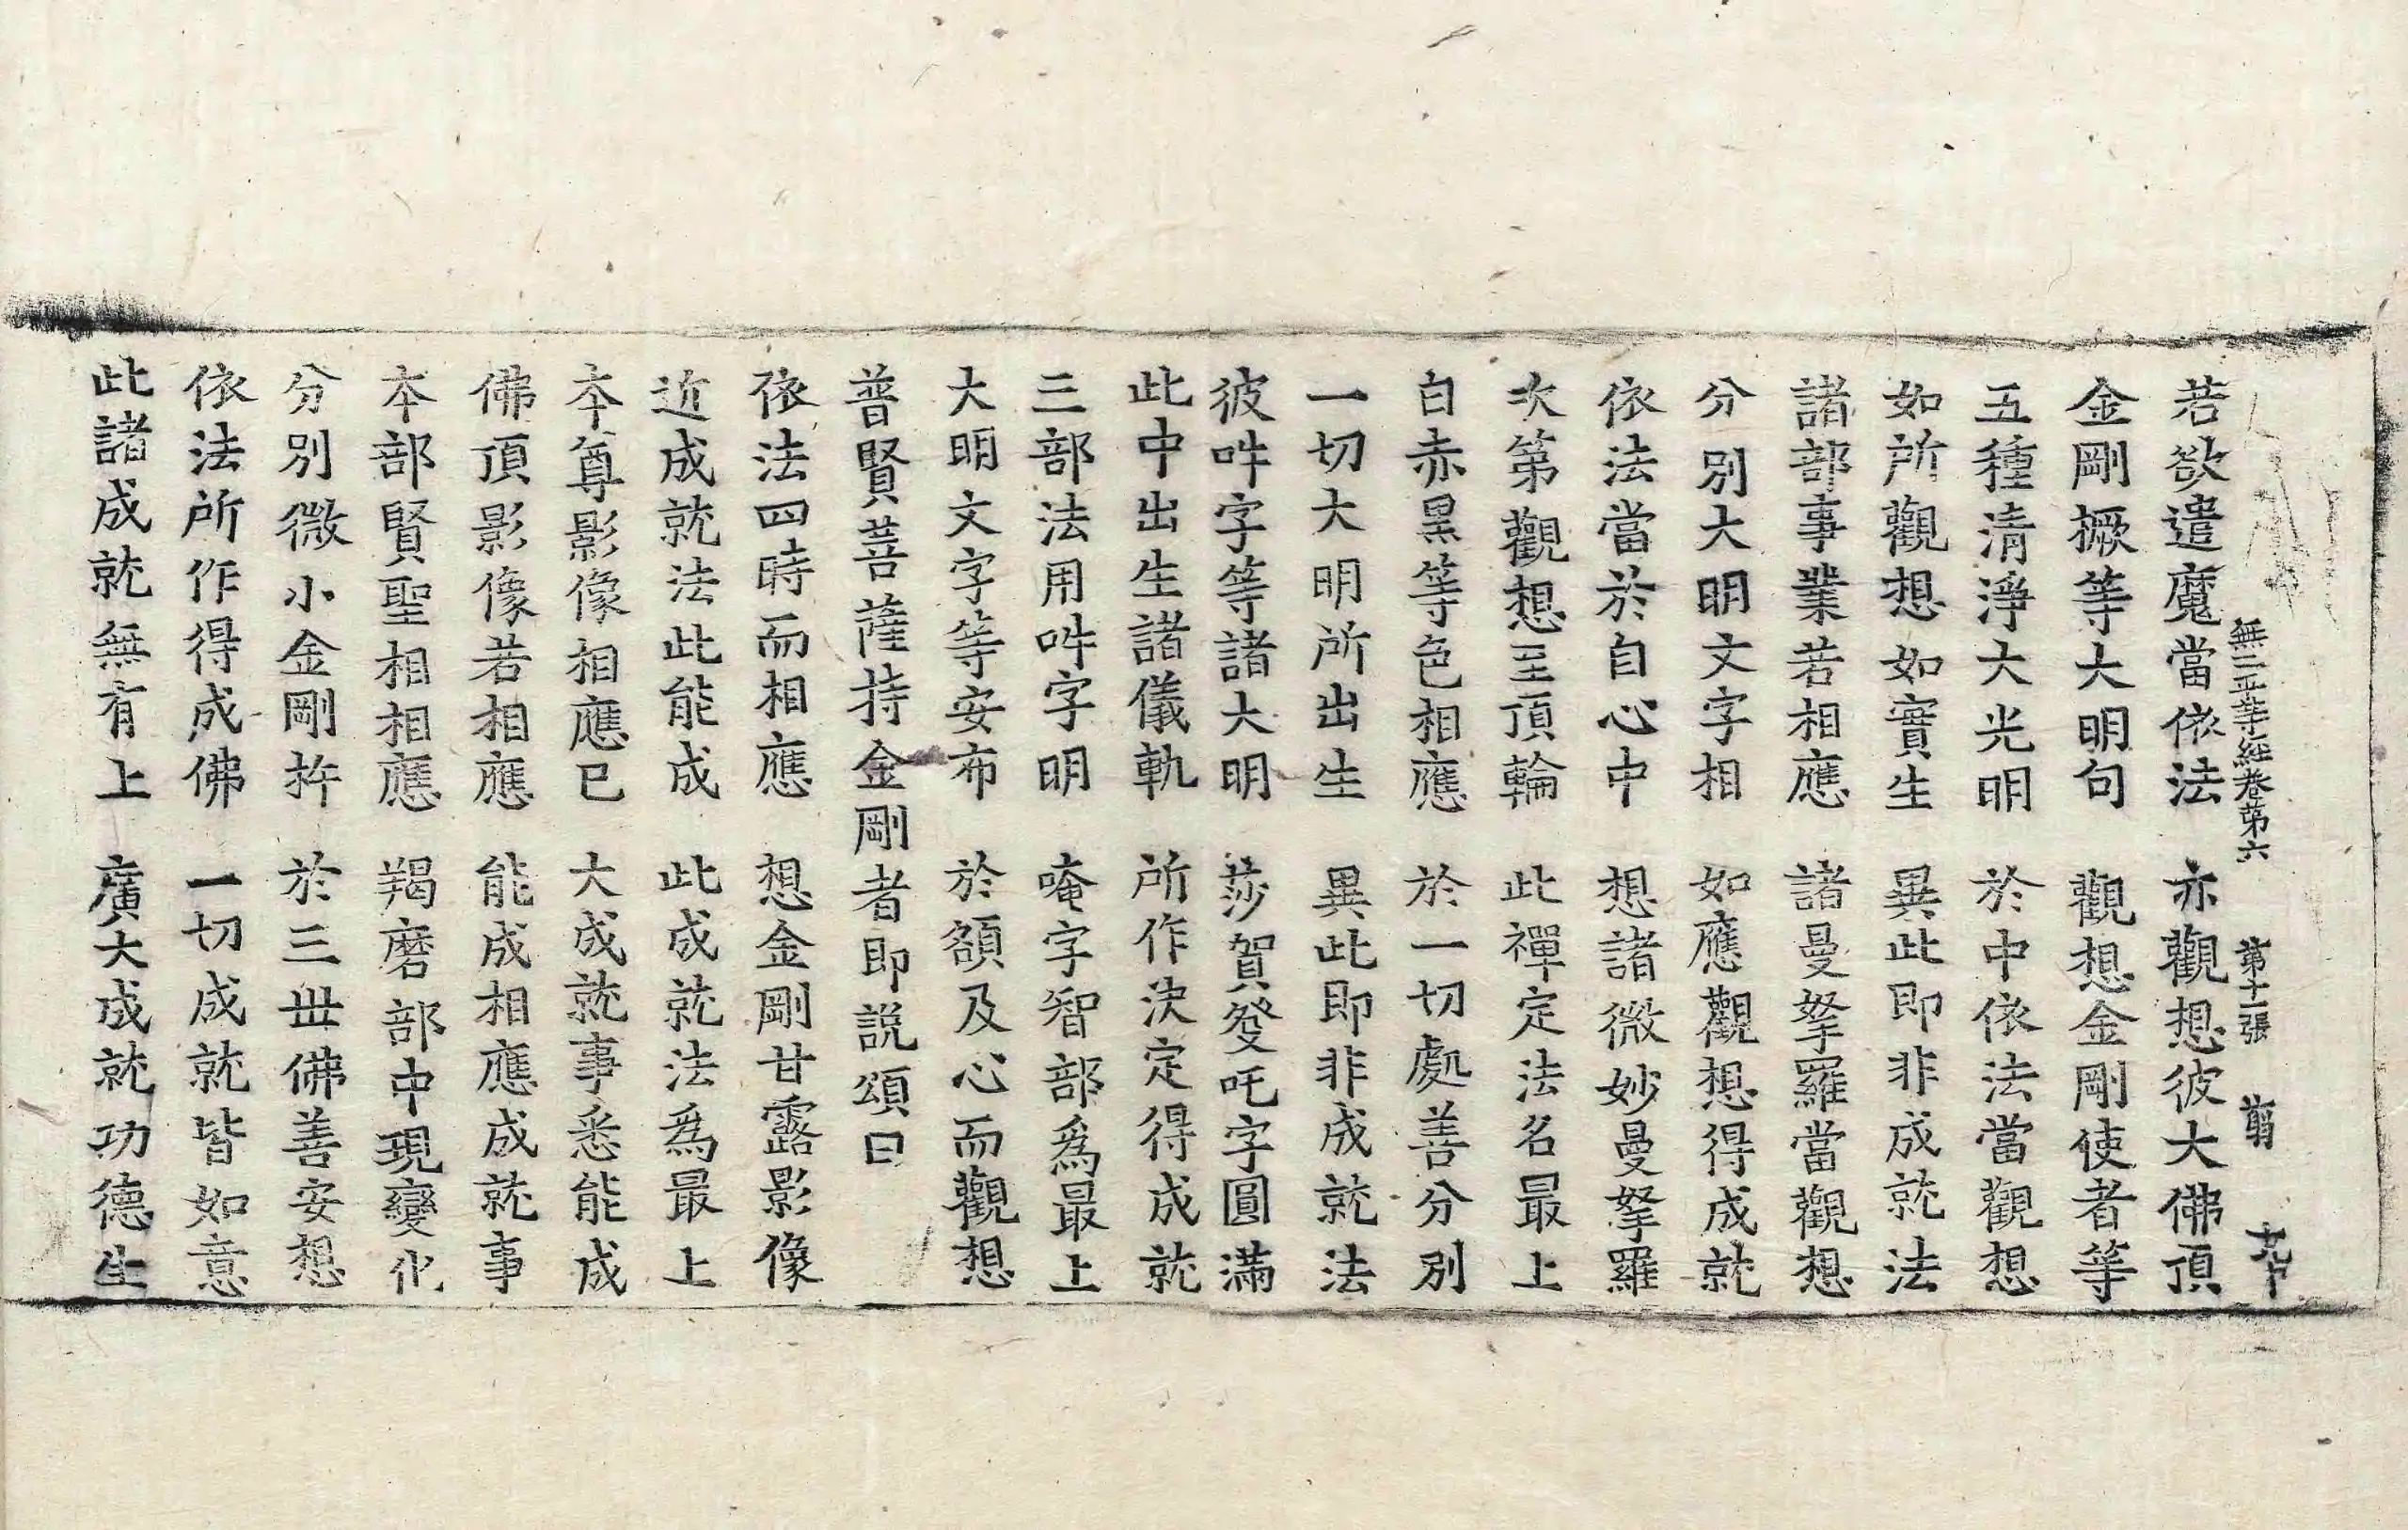 無二平等經卷第六　第十一張　剪
若欲遣魔當依法　亦觀想彼大佛頂
金剛橛等大明句　觀想金剛使者等
五種清淨大光明　於中依法當觀想
如所觀想如實生　異此即非成就法
諸部事業若相應　諸曼拏羅當觀想
分別大明文字相　如應觀想得成就
依法當於自心中　想諸微妙曼拏羅
次第觀想至頂輪　此禪定法名最上
白赤黑等色相應　於一切處善分別
一切大明所出生　異此即非成就法
彼吽字等諸大明　莎賀癹吒字圓滿
此中出生諸儀軌　所作決定得成就
三部法用吽字明　唵字智部爲最上
大明文字等安布　於額及心而觀想
普賢菩薩持金剛者即說頌曰
依法四時而相應　想金剛甘露影像
近成就法此能成　此成就法爲最上
本尊影像相應已　大成就事悉能成
佛頂影像若相應　能成相應成就事
本部賢聖相相應　羯磨部中現變化
分別微小金剛杵　於三世佛善安想
依法所作得成佛　一切成就皆如意
此諸成就無有上　廣大成就功德生